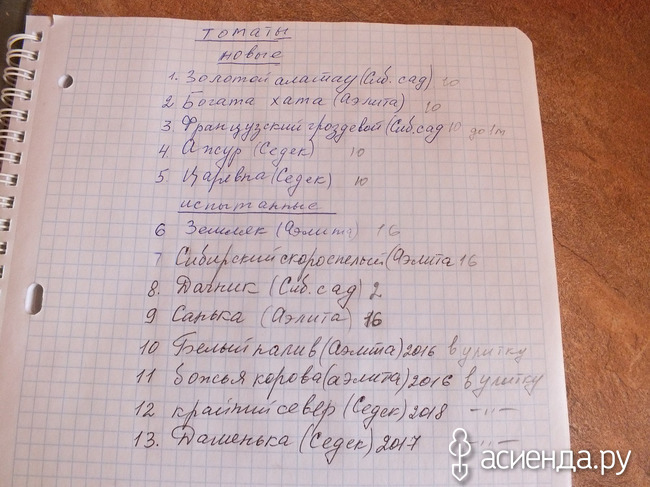 томаты
новые
1. Золотой алатау (Сиб. сад) 10
2 Богата хата (Аэлита) 10
3 Французский гроздевой (Сиб.сад 10 до 1м
4 Ажур (Седек) 10
5. Царевна (Седек) 10
испытанные
6 Земляк (Аэлита) 16
7 Сибирский скороспелый (Аэлита 16
8. Дачник (Сиб. сад) 2
9 Санька (Аэлита) 16
10 Белый налив (Аэлита) 2016 в улитку
11 божья корова (аэлита) 2016 в улитку
12 крайний север (Седек) 2018 -"-
13. Даменька (Седек) 2017 -"-
асиенда.ру